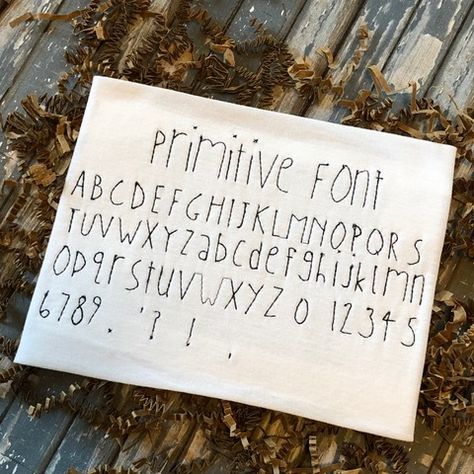 primitive font
ABCDEFGHIJKLMNOPQRS
TUVWXYZabcdefghijklmn
opqrstuvwxyz 0 12345
6789. '? ! ,